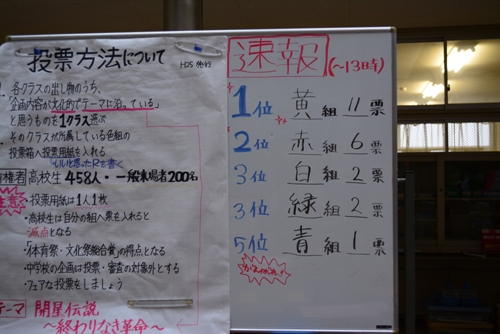 投票方法について
H25 免校
各クラスの出し物のうち、
「企画内容が文化的でテーマに沿っている」
と思うものを1クラス選ぶ
そのクラスが所属している色組の
投票箱へ投票用紙を入れる
いいと思ったRを書く
権者 高校生 458人・一般来場者200名
注意
・投票用紙は1人1枚
・高校生は自分の組へ票を入れると
減点となる
・「体育祭・文化祭総合賞」の得点となる
・中学校の企画は投票・審査の対象外とする
・フェアな投票をしましょう
テーマ 開星伝説
～終わりなき革命～
速報
(～13時)
1位 黄組 11票
2位 赤組 6票
3位 白組 2票
3位 緑組 2票
5位 青組 1票